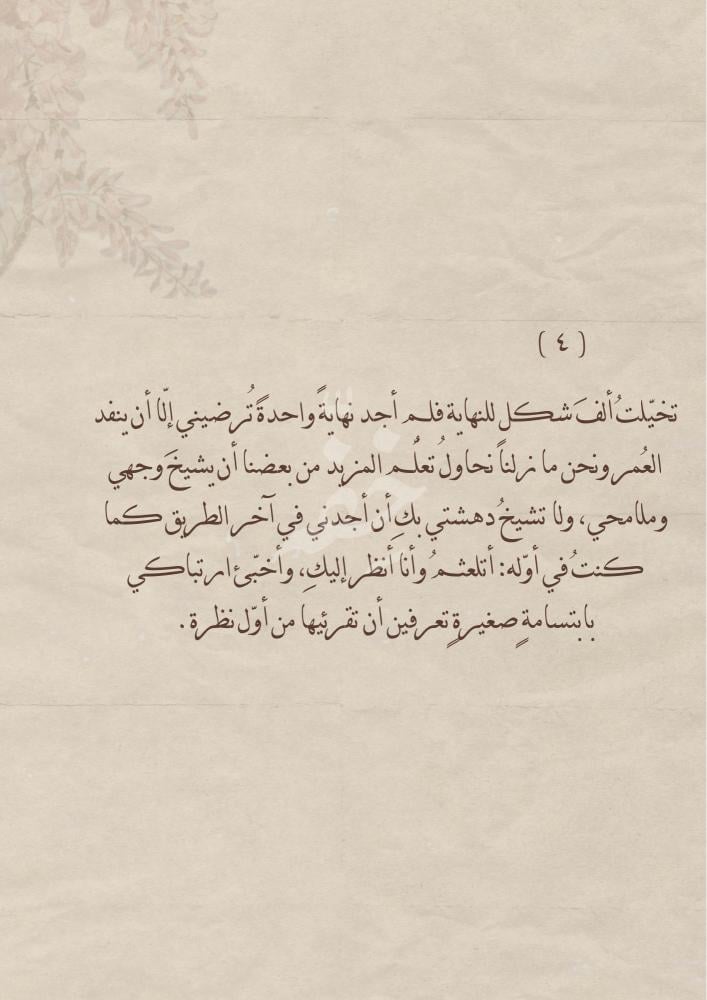 ( ٤ )
تخيّلتُ ألفَ شكل للنهاية فلم أجد نهايةً واحدةً تُرضيني إلّا أن ينفد
العُمر ونحن ما زلناً نحاول تعلُّم المزيد من بعضنا أن يشيخَ وجهي
وملامحي، ولا تشيخُ دهشتي بكِ أن أجدني في آخر الطريق كما
كنتُ في أوّله: أتلعثمُ وأنا أنظر إليكِ، وأخبّئ ارتباكي
بابتسامةٍ صغيرةٍ تعرفين أن تقرئيها من أوّل نظرة .